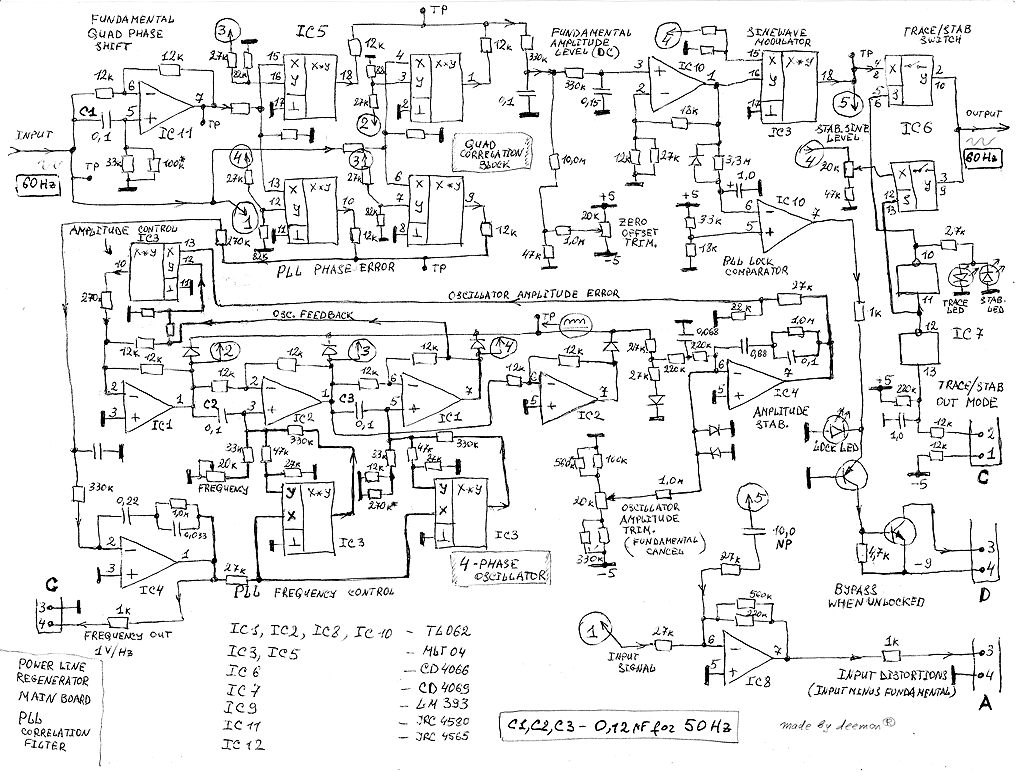 FUNDAMENTAL
QUAD PHASE
SHIFT
12k
12k
6
5
7
C1
0,1
IC11
TP
33k
100k*
INPUT
TP
60 Hz
3
27k
82k
IC5
15
16
17
X
Y
X*Y
18
12k
TP
4
3
8
X
Y
X*Y
1
12k
27k
2
4
27k
13
12
11
X
Y
X*Y
10
82k
3
27k
82k
12k
6
7
8
X
Y
X*Y
9
12k
TP
1
270k
QUAD
CORRELATION
BLOCK
PLL PHASE ERROR
FUNDAMENTAL
AMPLITUDE
LEVEL (DC)
330k
0,1
330k
0,15
3
2
1
IC10
18k
12k
27k
3,3m
1,0
10,0m
47k
1,0m
20k
+5
-5
ZERO
OFFSET
TRIM.
+5
33k
18k
6
5
7
IC10
PLL LOCK
COMPARATOR
4
SINEWAVE
MODULATOR
15
16
17
X
Y
X*Y
18
IC3
TP
5
STAB. SINE
LEVEL
4
20k
47k
TRACE/STAB
SWITCH
IC6
OUTPUT
60 Hz
27k
TRACE
LED
STAB.
LED
10
11
12
13
IC7
+5
220k
1,0
12k
12k
-5
TRACE/STAB
OUT MODE
2
1
C
AMPLITUDE CONTROL
IC3
X*Y
X
Y
13
12
11
10
270k
OSCILLATOR AMPLITUDE ERROR
OSC. FEEDBACK
12k
12k
2
3
1
IC1
2
12k
C2
0,1
2
3
1
IC2
3
12k
12k
C3
0,1
6
5
7
IC1
4
TP
12k
12k
6
5
7
IC2
27k
27k
220k
0,068
220k
82k
27k
0,68
1,0m
0,1
6
5
7
IC4
AMPLITUDE
STAB.
1k
LOCK LED
33k
20k
FREQUENCY
47k
330k
27k
Y
X
X*Y
IC3
12k
33k
270k*
47k
330k
27k
Y
X
X*Y
IC3
4-PHASE
OSCILLATOR
560k
100k
20k
330k
-5
1,0m
OSCILLATOR
AMPLITUDE
TRIM.
(FUNDAMENTAL
CANCEL)
330k
0,22
1,0m
0,033
2
3
1
IC4
27k
PLL FREQUENCY CONTROL
C
3
4
1k
FREQUENCY OUT
1V/Hz
5
10,0
NP
27k
4,7k
-9
BYPASS
WHEN UNLOCKED
3
4
D
1
INPUT
SIGNAL
27k
560k
220k
6
5
7
IC8
1k
INPUT DISTORTIONS
(INPUT MINUS FUNDAMENTAL)
3
4
A
IC1, IC2, IC8, IC10 - TL062
IC3, IC5 - MLT04
IC6 - CD4066
IC7 - CD4069
IC9 - LM393
IC11 - JRC 4580
IC12 - JRC 4565
POWER LINE
REGENERATOR
MAIN BOARD
PLL
CORRELATION
FILTER
C1, C2, C3 - 0,12 MF for 50 Hz
made by deemon®